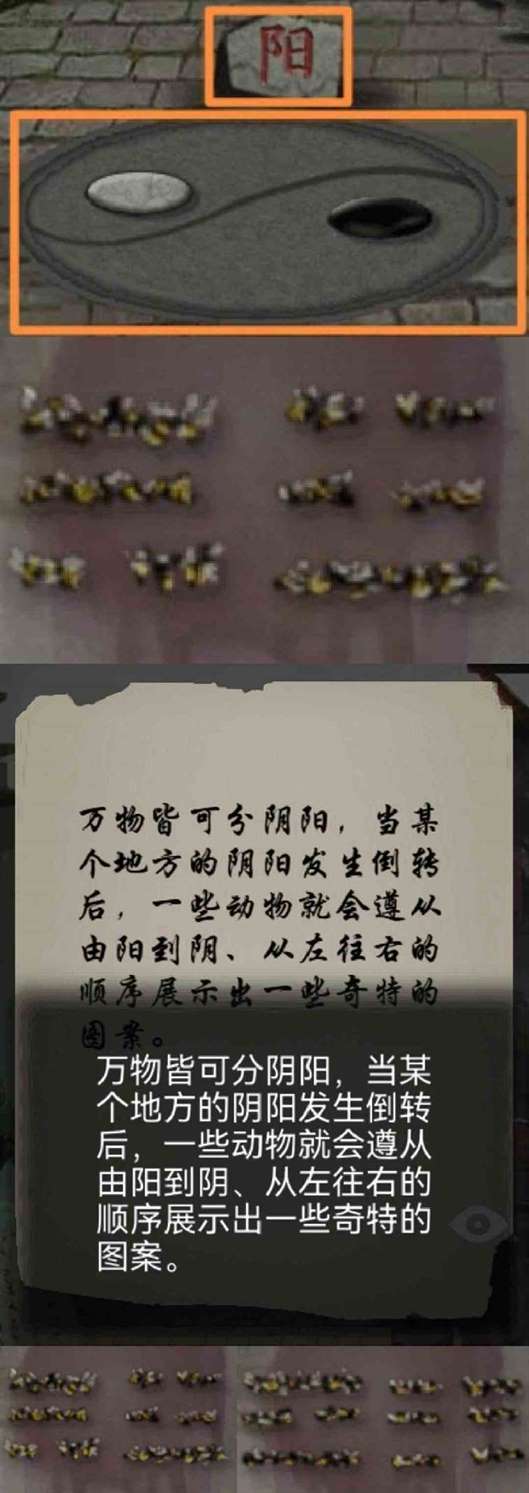 阳
万物皆可分阴阳，当某
个地方的阴阳发生倒转
后，一些动物就会遵从
由阳到阴、从左往右的
顺序展示出一些奇特的
图案。
万物皆可分阴阳，当某
个地方的阴阳发生倒转
后，一些动物就会遵从
由阳到阴、从左往右的
顺序展示出一些奇特的
图案。